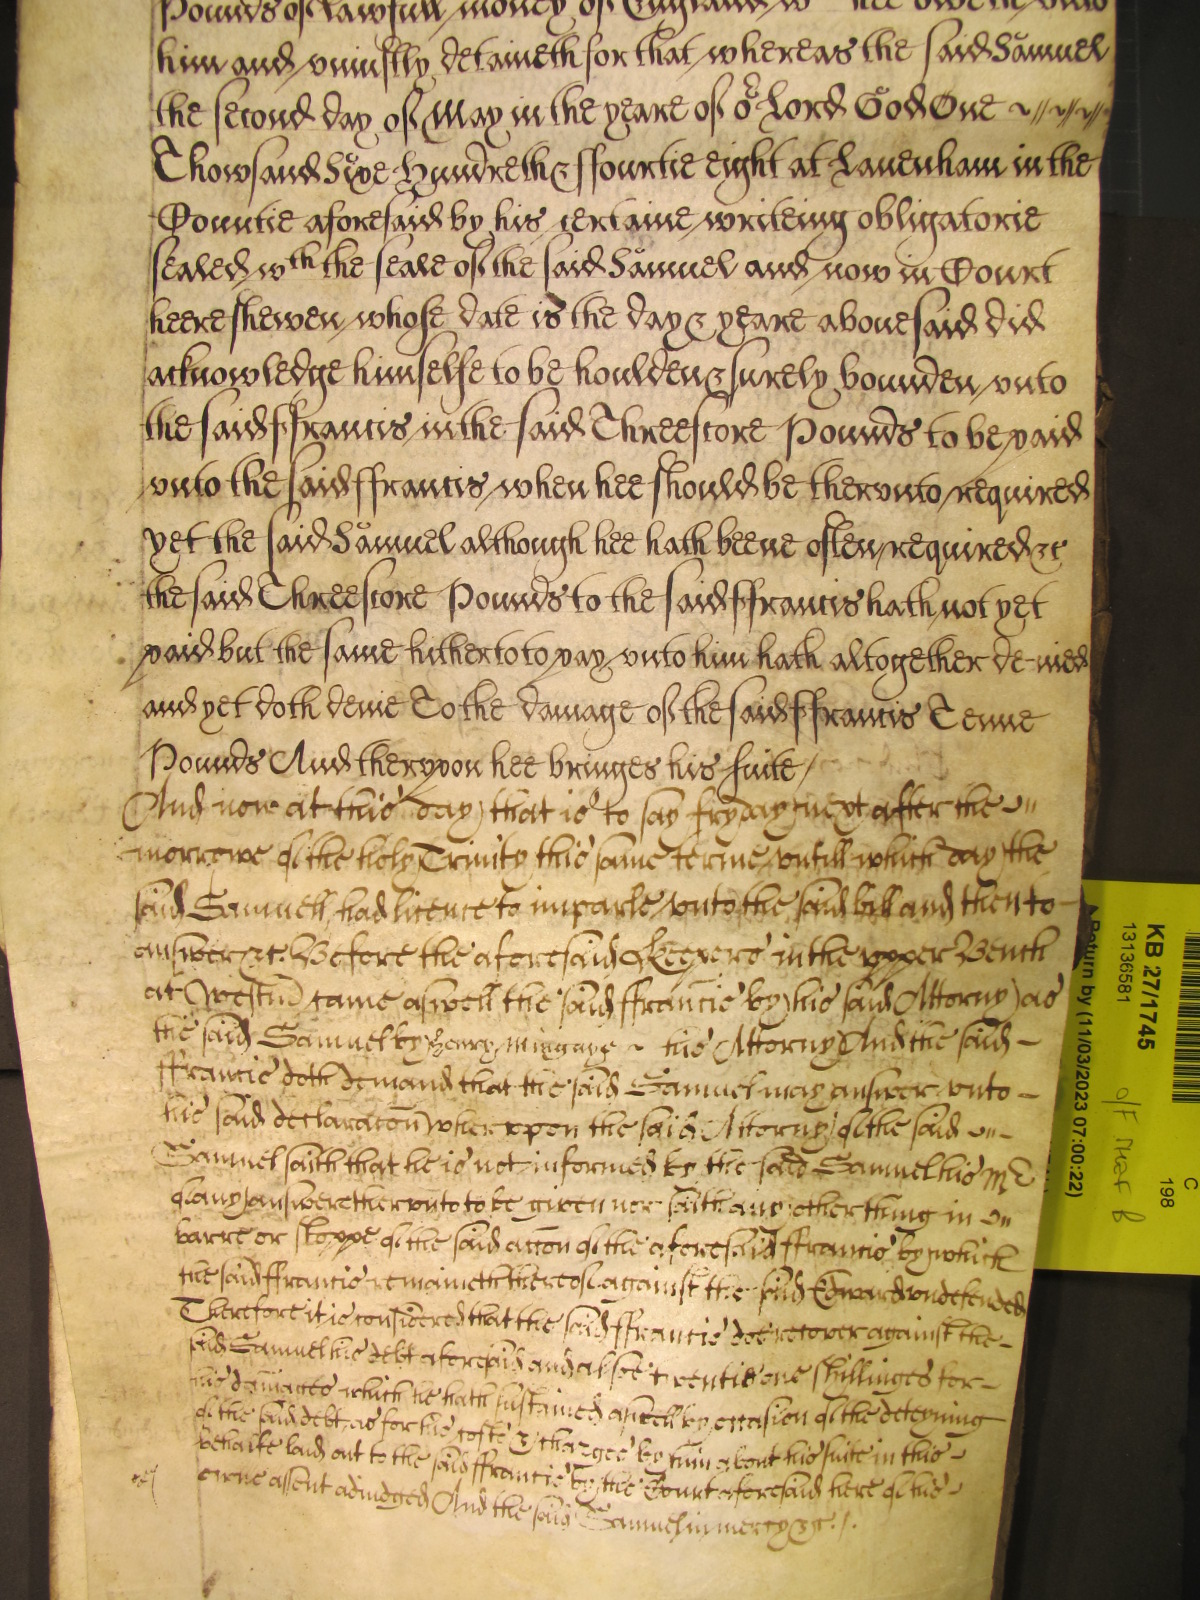 Pounds of Lawfull money of England wch hee oweth vnto
him and vniustly detaineth for that whereas the said Samuel
the second day of May in the yeare of or Lord God One
Thowsand Sixe Hundreth & ffourtie eight at Lauenham in the
Countie aforesaid by his certaine writeing obligatorie
sealed wth the seale of the said Samuel and now in Court
heere shewen whose date is the day & yeare aboue said did
acknowledge himselfe to be houlden & surely bounden vnto
the said ffrancis in the said Threescore Pounds to be paid
vnto the said ffrancis when hee should be thervnto required
yet the said Samuel although hee hath beene often required &c
the said Threescore Pounds to the said ffrancis hath not yet
paid but the same hitherto to pay vnto him hath altogether denied
and yet doth denie To the damage of the said ffrancis Tenne
Pounds And thervpon hee bringes his suite /
And now at this day that is to say fryday next after the
morrowe of the Holy Trinity this same terme vntill which day the
said Samuell had licence to imparle vnto the said bill and then to
answer &c. Before the aforesaid Keepers in the vpper Bench
at Westm̃ came aswell the said ffrancis by his said Attorny as
the said Samuel by Henry Mingaye his Attorny And the said
ffrancis doth demand that the said Samuel may answer vnto
his said declaracon wherevpon the said Attorny of the said
Samuel saith that he is not informed by the said Samuel his Mr
of any answere thervnto to be given nor saith any other thing in
barre or stoppe of the said accon of the aforesaid ffrancis by which
the said ffrancis remaineth thereof against the said Edward vndefended
Therefore it is considered that the said ffrancis doe recover against the
said Samuel his debt aforesaid and alsoe twentie one shillinges for
his damages which he hath sustained aswell by occasion of the deteyning
of the said debt as for his costs & charges by him about his suite in this
behalfe laid out to the said ffrancis by the Court aforesaid here of his
owne assent adiudged And the said Samuel in mercy &c. /.
KB 27/1745
13136581
Return by (11/03/2023 07:00:22)
C
198